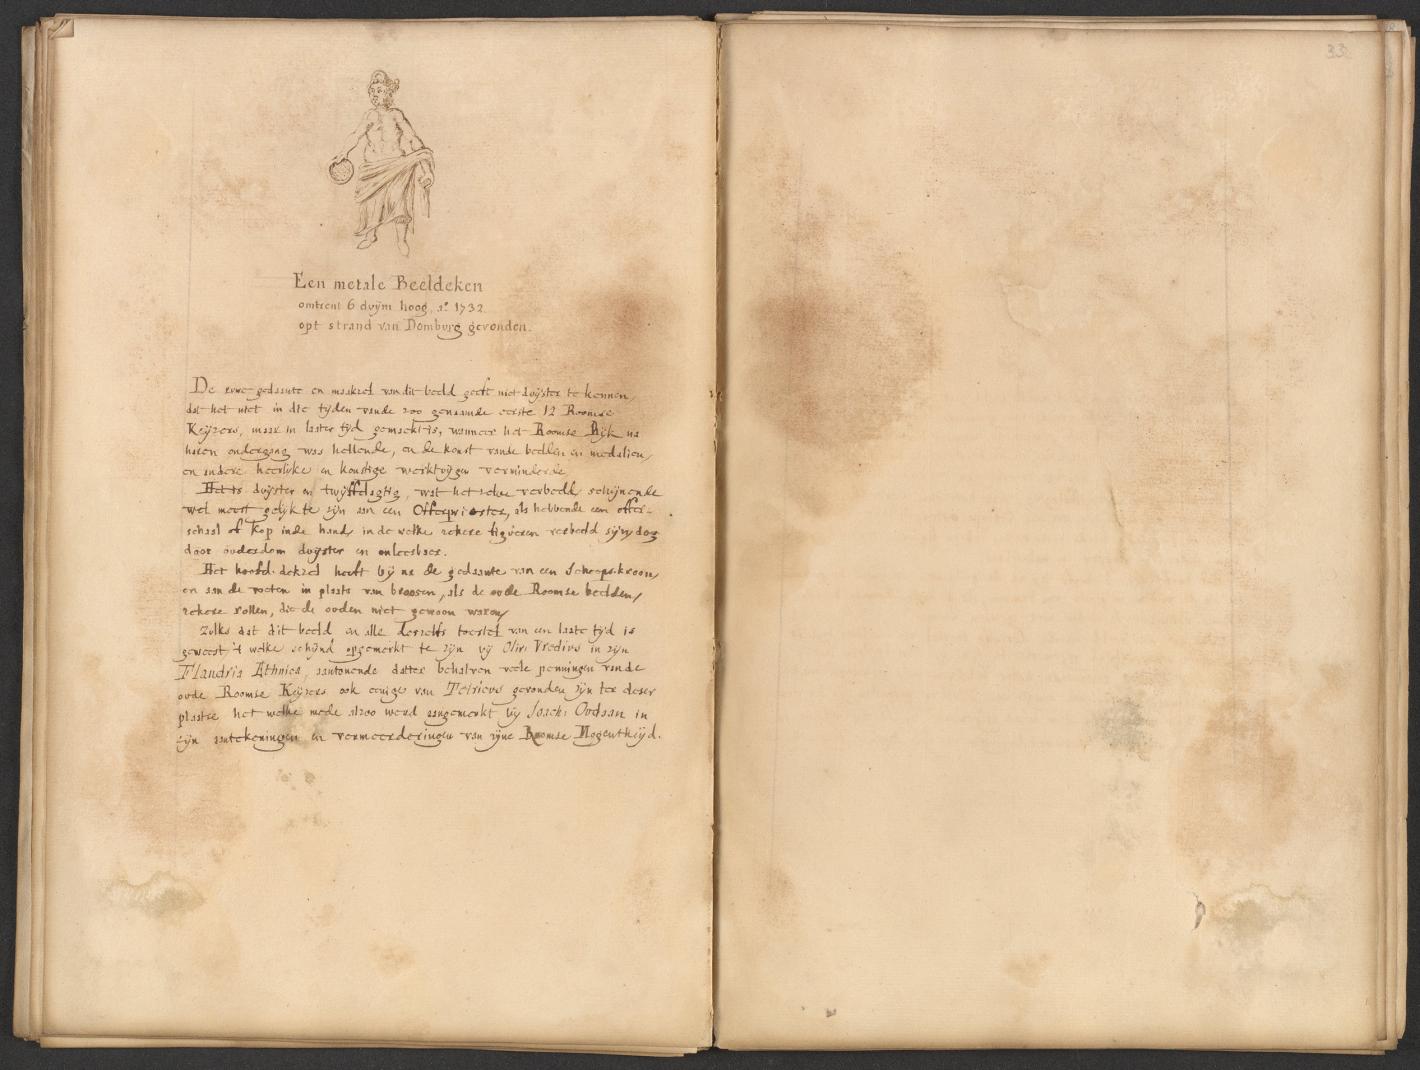 33
Een metale Beeldeken
omtrent 6 duÿm hoog, aº 1732
opt strand van Domburg gevonden.
De ruwe gedaante en maaksel van dit beeld geeft niet duÿster te kennen,
dat het niet in die tyden vande zoo genaamde eerste 12 Roomse
Keÿzers, maar in laater tyd gemaakt is, wanneer het Roomse Rÿk na
haren ondergang was hellende, en de konst vande beelden en medalien,
en andere heerlÿke en konstige werktuÿgen verminderde
Het is duÿster en twÿffelagtig, wat het zelve verbeeld, schijnende
wel meest gelÿk te zÿn aan een Offerpriester, als hebbende een offer-
schaal of kop inde hand, in de welke zekere figueren verbeeld zÿn, dog
door ouderdom duÿster en onleesbaer.
Het hoofd-deksel heeft bÿ na de gedaante van een Scheeps-kroon,
en aan de voeten in plaats van broosen, als de oude Roomse beelden,
zekere rollen, die de ouden niet gewoon waren,
Zulks dat dit beeld en alle deszelfs toestel van een laate tyd is
geweest 't welke schÿnd opgemerkt te zÿn bÿ Oliv: Vredius in zÿn
Flandria Ethnica, aantonende datter behalven veele penningen vande
oude Roomse Keÿzers ook eenige van Tetricus gevonden zÿn ter deser
plaatse het welke mede alzoo werd aangemerkt bÿ Joach: Oudaan in
zÿn aantekeningen en vermeerderingen van zÿne Roomse Mogentheÿd.